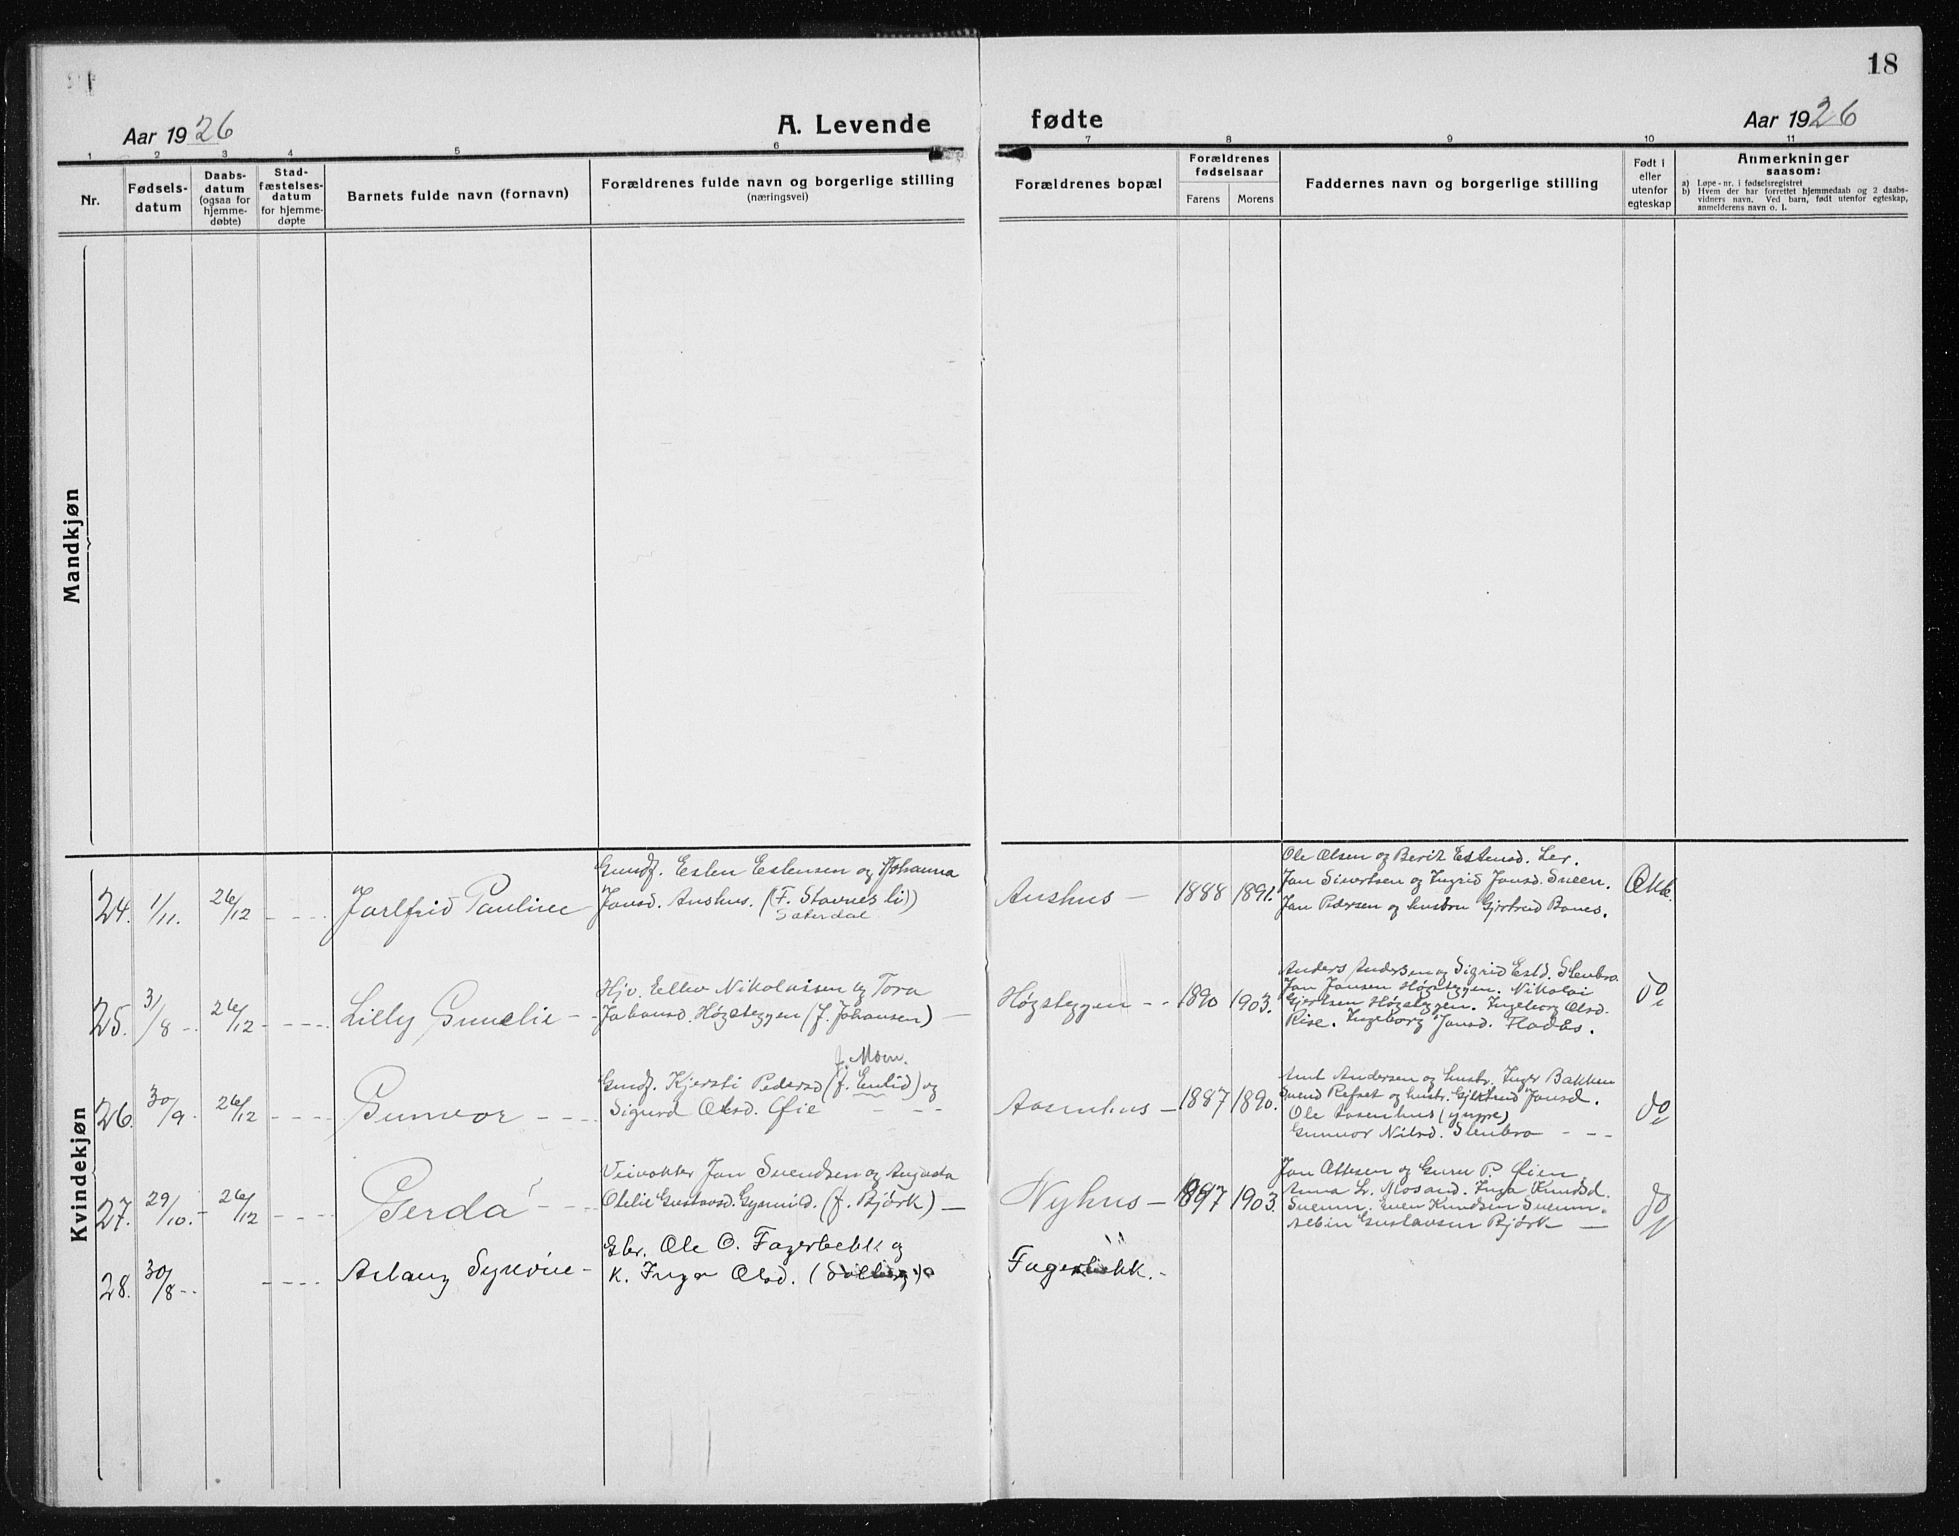 18
Aar 1926
A. Levende fødte
Aar 1926
1 2 3 4 5 6 7 8 9 10 11
Nr.
Fødsels-
datum
Daabs-
datum
(ogsaa for
hjemme-
døbte)
Stad-
fæstelses-
datum
for hjemme-
døpte
Barnets fulde navn (fornavn)
Forældrenes fulde navn og borgerlige stilling
(næringsvei)
Forældrenes bopæl
Forældrenes
fødselsaar
Farens
Morens
Faddernes navn og borgerlige stilling
Født i
eller
utenfor
egteskap
Anmerkninger
saasom:
a) Løpe-nr. i fødselsregistret
b) Hvem der har forrettet hjemmedaab og 2 daabs-
vidners navn. Ved barn, født utenfor egteskap,
anmelderens navn o. l.
Mandkjøn
Kvindekjøn
24. 1/11. 26/12 - - - -
Jarlfrid Pauline
Gmdf. Esten Estensen og Johanna
Jonsd. Aushus. (F. Stavnesli)
Sæterdal
Aushus —
1888 1891.
Ole Olsen og Berit Estensd. Ler.
Jon Sivertsen og Ingrid Jonsd. Sneen.
Jon Pedersen og hustru Gjertrud Bones.
Ekte.
25. 31/8 - - 26/12 - - - - -
Lilly Gunelie - -
Hjv. Ellev Nikolaisen og Tora
Johansd. Høgsteggen (f. Johansen) —
Høgsteggen - -
1890 1903.
Anders Andersen og Sigrid Estd. Stenbro.
Jon Jonsen Høgsteggen. Nikolai
Gjertsen Høgsteggen. Ingeborg Olsd.
Rise. Ingeborg Jonsd. Flaaås.
do
26. 30/9. 26/12 - - - -
Gunvor - - - -
f. Moen.
Gmdf. Kjersti Pedersd (f. Enlid) og
Sigurd Olsd. Øie - - -
Aasenhus —
1887 1890.
Arnt Andersen og hustr. Inger Bakken
Svend Refset og hustr. Gjertrud Jonsd.
Ole Aasenhus (yngre)
Gunnor Nilsd. Stenbro - - -
do
27. 29/10. - 26/12 - - - -
Gerda - - - -
Veivokter Jon Svendsen og Augusta
Otelie Gustavsd. Gynnild. (f. Bjørk) —
Nyhus —
1897 1903.
Jon Ottesen og Guru P. Øien
Anna L. Mosand. Inga Knudsd.
Svenn. Even Knudsen Svenn.
Albin Gustavsen Bjørk —
do
28. 30/8 - - - - - -
Aslaug Synøve -
Gbr. Ole O. Fagerbekk og
K. Inga Olsd.
Fagerbekk. -